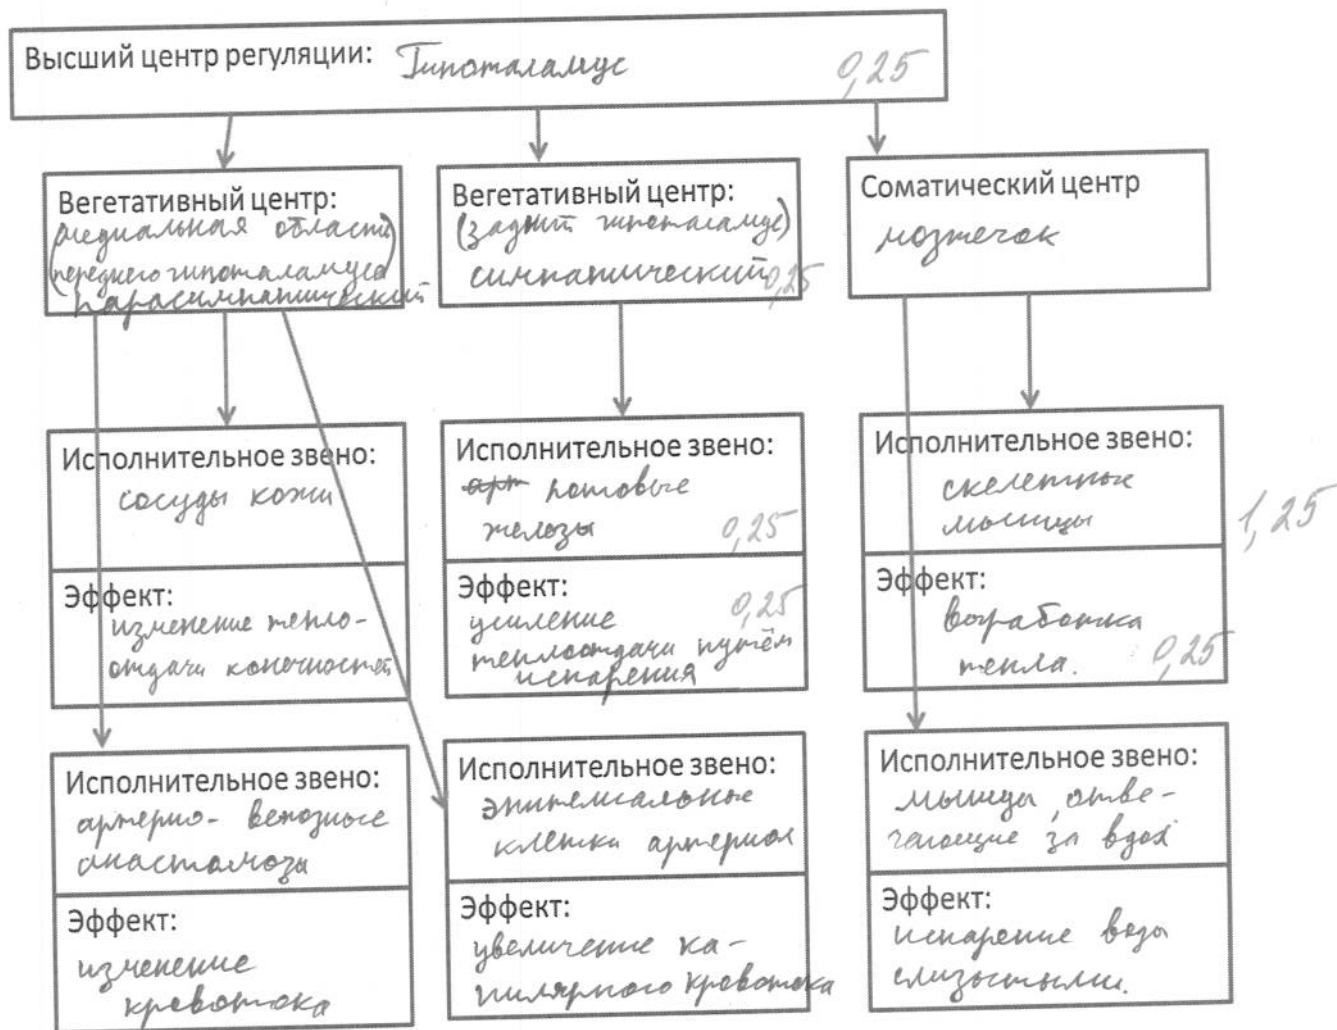 Высший центр регуляции: Гипоталамус 0,25
Вегетативный центр:
(медиальная область
переднего гипоталамуса)
парасимпатический
Вегетативный центр:
(задний гипоталамус)
симпатический 0,25
Соматический центр
мозжечок
Исполнительное звено:
сосуды кожи
Эффект:
изменение тепло-
отдачи конечностей
Исполнительное звено:
потовые
железы 0,25
Эффект:
усиление 0,25
теплоотдачи путём
испарения
Исполнительное звено:
скелетные
мышцы
1,25
Эффект:
выработка
тепла. 0,25
Исполнительное звено:
артерио-венозные
анастомозы
Эффект:
изменение
кровотока
Исполнительное звено:
эпителиальные
клетки артериол
Эффект:
увеличение ка-
пилярного кровотока
Исполнительное звено:
мышцы, отве-
чающие за вдох
Эффект:
испарение воды
слизистыми.